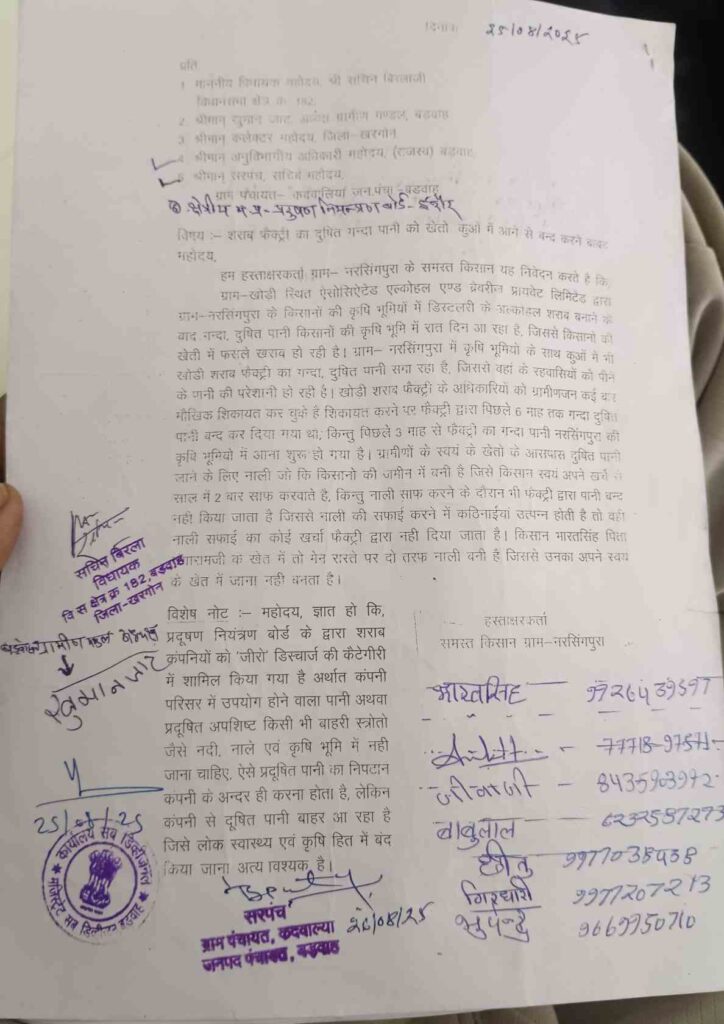 दिनांक 25/08/2025
प्रति,
1 माननीय विधायक महोदय, श्री सचिन बिरलाजी
विधानसभा क्षेत्र क्र 182,
2 श्रीमान खुमान जाट, अध्यक्ष ग्रामीण मण्डल, बडवाह
3 श्रीमान कलेक्टर महोदय, जिला-खरगोन
4 श्रीमान अनुविभागीय अधिकारी महोदय, (राजस्व) बडवाह,
5 श्रीमान सरपंच, सचिव महोदय,
ग्राम पंचायत- कदवालिया जन.पंचा.-बडवाह
⑥ क्षेत्रीय म.प्र- प्रदुषण नियन्त्रण बोर्ड- इन्दौर
विषय :- शराब फैक्ट्री का दुषित गन्दा पानी को खेतो कुओं में आने से बन्द करने बाबत
महोदय,
हम हस्ताक्षरकर्ता ग्राम- नरसिंगपुरा के समस्त किसान यह निवेदन करते है कि,
ग्राम-खोड़ी स्थित ऐसोसिऐटेड एल्कोहल एण्ड ब्रेवरीज प्रायवेट लिमिटेड द्वारा
ग्राम-नरसिंगपुरा के किसानों की कृषि भूमियों में डिस्टलरी के अल्कोहल शराब बनाने के
बाद गन्दा, दुषित पानी किसानों की कृषि भूमि में रात दिन आ रहा है, जिससे किसानों की
खेती में फसले खराब हो रही है। ग्राम- नरसिंगपुरा में कृषि भूमियो के साथ कुओं में भी
खोडी शराब फैक्ट्री का गन्दा, दुषित पानी समा रहा है, जिससे वहां के रहवासियों को पीने
के पानी की परेशानी हो रही है। खोडी शराब फैक्ट्री के अधिकारियों को ग्रामीणजन कई बार
मौखिक शिकायत कर चुके है शिकायत करने पर फैक्ट्री द्वारा पिछले 6 माह तक गन्दा दुषित
पानी बन्द कर दिया गया था, किन्तु पिछले 3 माह से फैक्ट्री का गन्दा पानी नरसिंगपुरा की
कृषि भूमियों में आना शुरू हो गया है। ग्रामीणों के स्वयं के खेतो के आसपास दुषित पानी
जाने के लिए नाली जो कि किसानो की जमीन में बनी है जिसे किसान स्वयं अपने खर्च से
साल में 2 बार साफ करवाते है, किन्तु नाली साफ करने के दौरान भी फेक्ट्री द्वारा पानी बन्द
नही किया जाता है जिससे नाली की सफाई करने में कठिनाईयां उत्पन्न होती है तो वही
नाली सफाई का कोई खर्चा फैक्ट्री द्वारा नही दिया जाता है। किसान भारतसिंह पिता
रामजी के खेत में तो मेन रास्ते पर दो तरफ नाली बनी है जिससे उनका अपने स्वयं
के खेत में जाना नही बनता है।
सचिन बिरला
विधायक
वि स क्षेत्र क्र 182, बड़वाह
जिला-खरगोन
खुमान जाट
25/08/25
कार्यालय सब डिवीजनल
मजिस्ट्रेट सब डिवीजन बड़वाह
विशेष नोट :- महोदय, ज्ञात हो कि,
प्रदूषण नियंत्रण बोर्ड के द्वारा शराब
कंपनियों को 'जीरो' डिस्चार्ज की कैटेगीरी
में शामिल किया गया है अर्थात कंपनी
परिसर में उपयोग होने वाला पानी अथवा
प्रदूषित अपशिष्ट किसी भी बाहरी स्त्रोतो
जैसे नदी, नाले एवं कृषि भूमि में नही
जाना चाहिए, ऐसे प्रदूषित पानी का निपटान
कंपनी के अन्दर ही करना होता है, लेकिन
कंपनी से दूषित पानी बाहर आ रहा है
जिसे लोक स्वास्थ्य एवं कृषि हित में बंद
किया जाना अत्य वश्यक है।
सरपंच 26/08/25
ग्राम पंचायत, कदवाल्या
जनपद पंचायत, बड़वाह
हस्ताक्षरकर्ता
समस्त किसान ग्राम-नरसिंगपुरा
भारतसिंह - 9926439597
- 77718-97571-
जीवाजी - 8435903972-
बाबुलाल 6232587273
छीतु 9977038438
गिरधारी 9977207213
भुपेन्द्र 9669950710